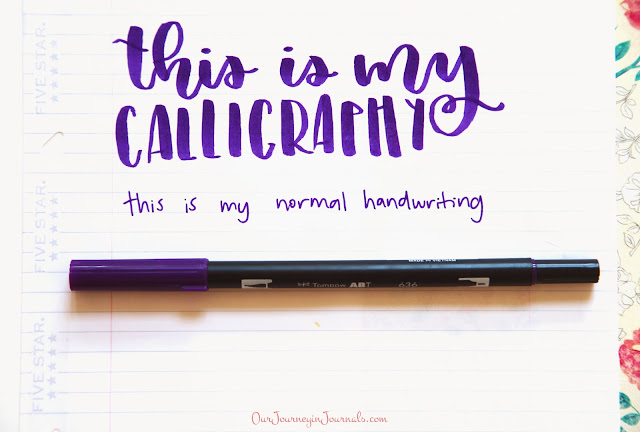 this is my
CALLIGRAPHY
this is my normal handwriting
MADE IN VIETNAM
Tombow ABT 636
FIVE STAR.
FIVE STAR.
FIVE STAR.
OurJourneyinJournals.com